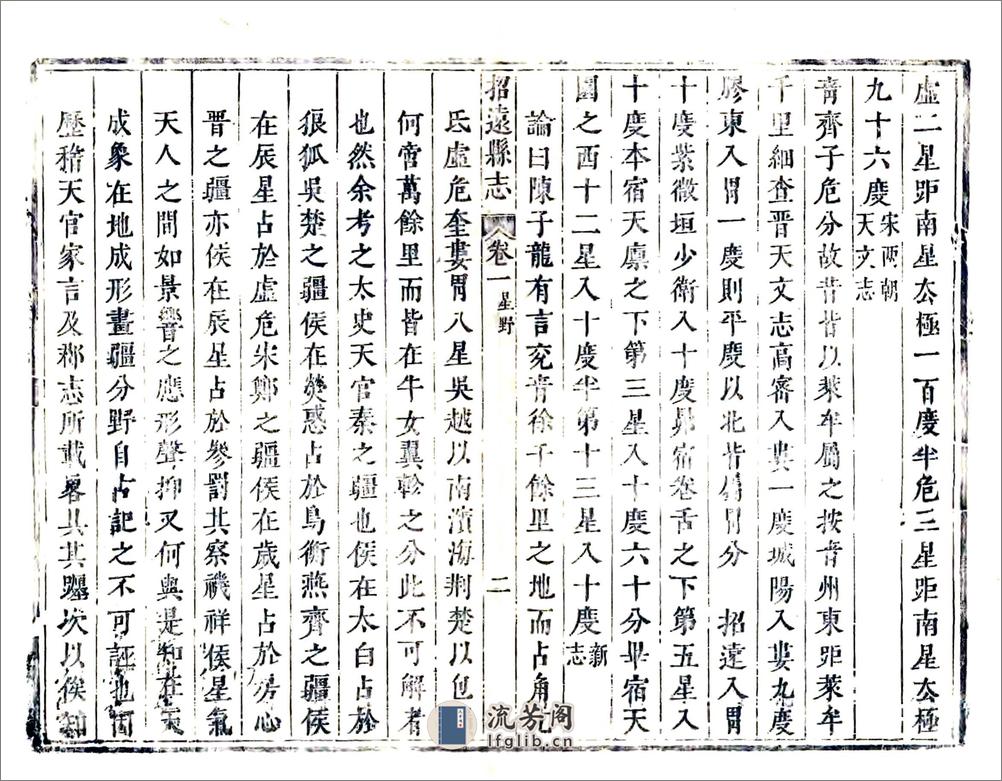 虛二星距南星去極一百度半危三星距南星去極
九十六度宋兩朝天文志
青齊子危分故昔皆以萊牟屬之按青州東距萊牟
千里細查晉天文志高密入婁一度城陽入婁九度
膠東入胃一度則平度以北皆屬胃分 招遠入胃
十度紫微垣少衛入十度昴宿卷舌之下第五星入
十度本宿天廪之下第三星入十度六十分畢宿天
園之西十二星入十度半第十三星入十度新志
論曰陳子龍有言兖青徐千餘里之地而占角
招遠縣志 卷一 星野 二
氐虛危奎婁胃八星吳越以南濱海荆楚以
何啻萬餘里而皆在牛女翼軫之分此不可解者
也然余考之太史天官秦之疆也侯在太白占於
狼狐吳楚之疆侯在熒惑占於鳥衡燕齊之疆侯
在辰星占於虛危宋鄭之疆侯在歲星占於房心
晋之疆亦侯在辰星占於參罰其察禨祥侯星氣
天人之間如景響之應形聲抑又何與是知在天
成象在地成形畫疆分野自占記之不可誣也因
歷稽天官家言及郡志所載畧具其躔次以俟知
流芳阁
lfglib.cn